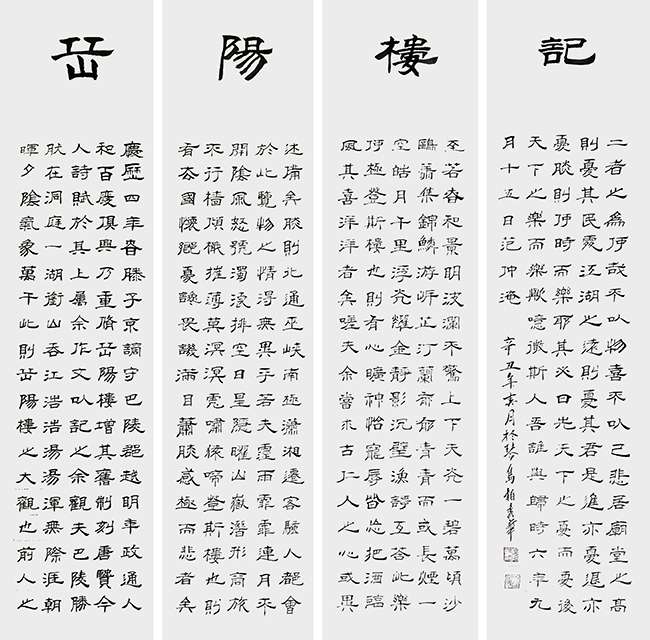 岳陽樓記
慶歷四年春滕子京謫守巴陵郡越明年政通人
和百廢俱興乃重脩岳陽樓增其舊制刻唐賢今
人詩賦於其上屬余作文以記之余觀夫巴陵勝
狀在洞庭一湖銜山吞江浩浩湯湯渾無際涯朝
暉夕陰氣象萬千此則岳陽樓之大觀也前人之
述備矣然則北通巫峽南極瀟湘遷客騷人都會
於此覽物之情得無異乎若夫霪雨霏霏連月不
開陰風怒號濁浪排空日星隱曜山嶽潛形商旅
不行檣傾檝摧薄莫溟溟虎嘯猿啼登斯樓也則
有去國懷鄉憂讒畏譏滿目蕭然感極而悲者矣
至若春和景明波瀾不驚上下天光一碧萬頃沙
鷗翕集錦鱗游岸芷汀蘭郁郁青青而或長煙一
空皓月千里浮光耀金靜影沉璧漁歌互答此樂
何極登斯樓也則有心曠神怡寵辱皆忘把酒臨
風其喜洋洋者矣嗟夫余嘗求古仁人之心或異
二者之為何哉不以物喜不以己悲居廟堂之高
則憂其民處江湖之遠則憂其君是進亦憂退亦
憂然則何時而樂耶其必曰先天下之憂而憂後
天下之樂而樂歟噫微斯人吾誰與歸時六年九
月十五日范仲淹
辛丑年亥月於琴島